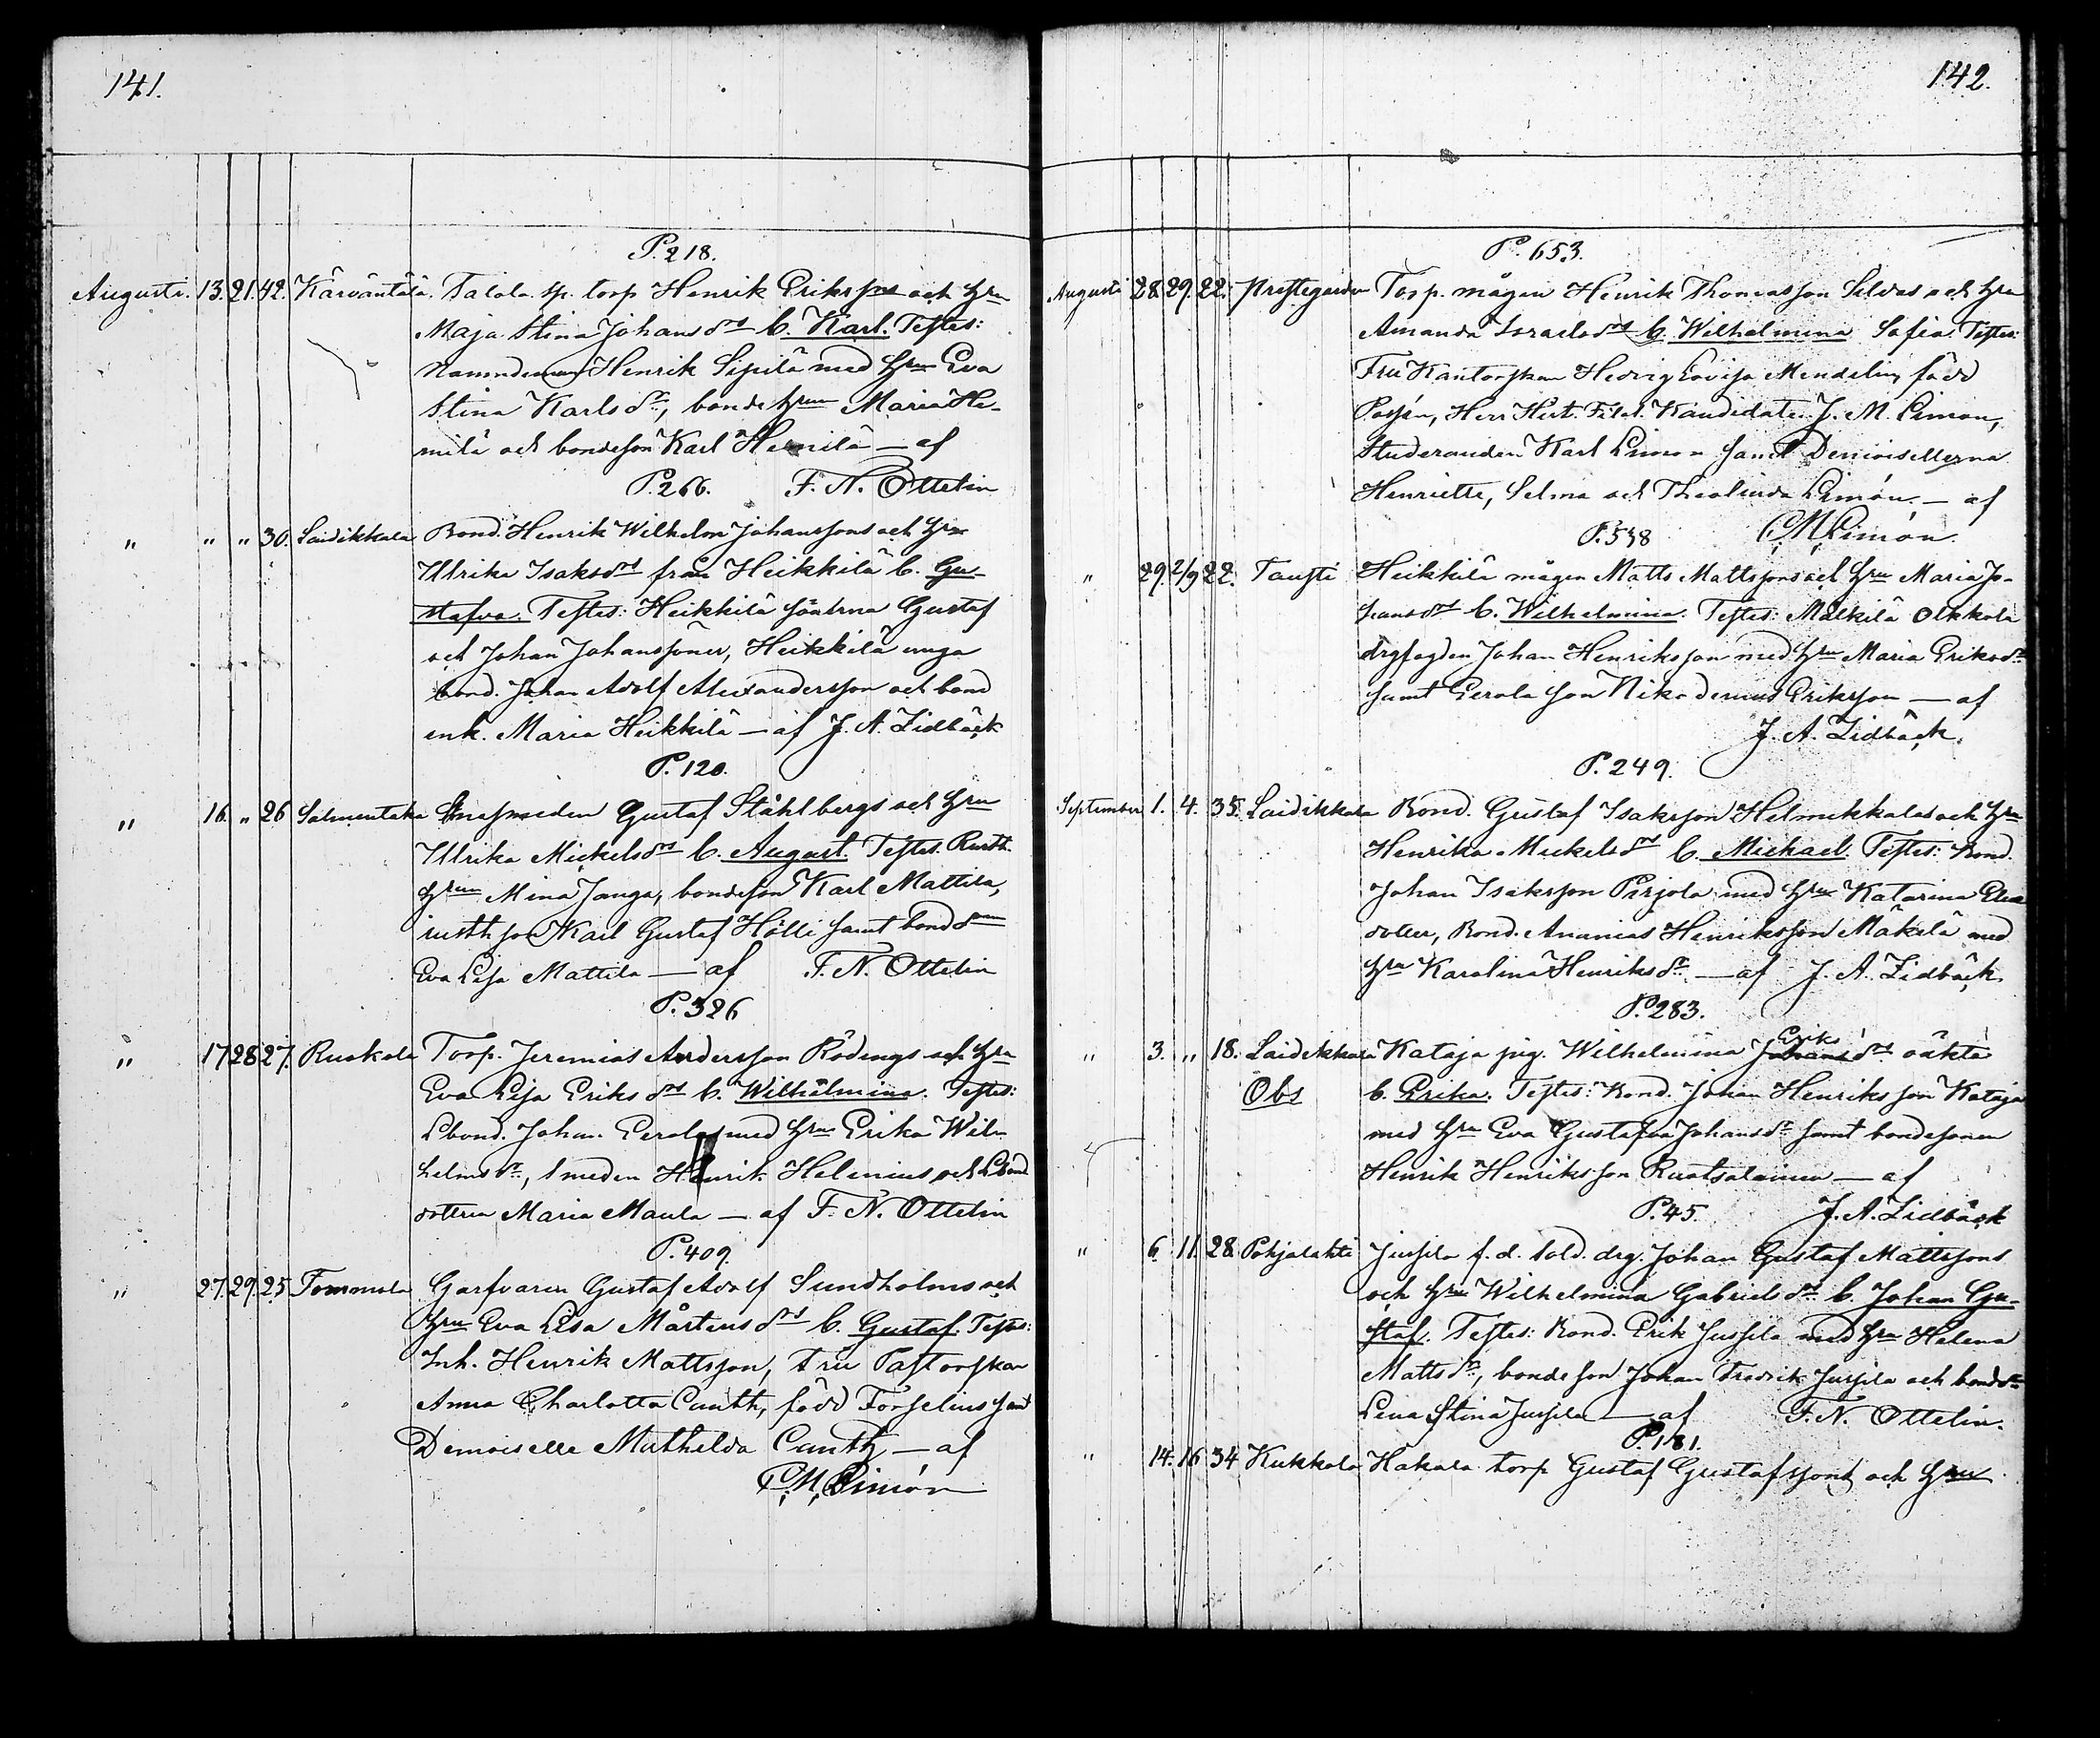 141.
P. 218.
Augusti. 13. 21. 42. Kärväntälä. Talola sp. torp Henrik Erikssons och hru
Maja Stina Johansdrs b. Karl. Testes:
Nämndeman Henrik Sipilä med hru Eva
Stina Karlsdr, bondehrun Maria He-
milä och bondeson Karl Hemilä — af
P. 266. F. N. Ottelin
" " " 30. Laidikkala Bond. Henrik Wilhelm Johanssons och hru
Ulrika Isaksdrs från Heikkilä b. Gu-
stafva. Testes: Heikkilä sönerna Gustaf
och Johan Johanssöner, Heikkilä unga
bond. Johan Adolf Alexandersson och bond
enk. Maria Heikkilä — af J. A. Lidbäck
P. 120.
" 16. " 26 Salmentaka Gustaf Ståhlbergs och hru
Ulrika Mickelsdrs b. August. Testes. Rusth.
hrun Mina Janga, bondeson Karl Mattila,
rusthson Karl Gustaf Hölli samt bonddrn
Eva Lisa Mattila — af F. N. Ottelin
P. 326
" 17 28 27. Ruokola Torp. Jeremias Andersson Rödings och hru
Eva Lisa Eriksdrs b. Wilhelmina. Testes:
Lbond. Johan Erola med hru Erika Wil-
helmsdr, smeden Henrik Helenius och Lbond
dottren Maria Maula — af F. N. Ottelin
P. 409.
" 27. 29. 25 Tommola Garfvaren Gustaf Adolf Sundholms och
hru Eva Lisa Mårtensdrs b. Gustaf. Testes:
Inh. Henrik Mattsson, Fru Pastorskan
Anna Charlotta Canth, född Forselius samt
Demoiselle Mathilda Canth — af
C. M. Limón
142.
P. 653.
Augusti 28. 29. 22. Prestegården Torp. mågen Henrik Thomasson Seldas och hru
Amanda Israelsdrs b. Wilhelmina Sofia. Testes:
Fru Kantorskan Hedvig Lovisa Mendelin, född
Herr Hist. Filol. Kandidaten J. M. Limon,
Studeranden Karl Limon samt Demoisellerna
Henriette, Selma och Theolinda Limón, — af
P. 538 C. M. Limón.
" 29. 2/9 22. Tausti Heikkilä mågen Matts Mattssons och hru Maria Jo-
hansdrs b. Wilhelmina. Testes: Mälkilä Olkkola
drgfogden Johan Henriksson med hru Maria Eriksdr
samt Erola son Nikodemus Eriksson — af
J. A. Lidbäck.
P. 249.
September 1. 4. 35. Laidikkala Bond. Gustaf Isaksson Helmikkalas och hru
Henrika Mickelsdrs b. Michael. Testes: Bond.
Johan Isaksson Pirjola med hru Katarina Elias
dotter, Bond. Ananias Henriksson Mäkelä med
hru Karolina Henriksdr — af J. A. Lidbäck
P. 283.
Eriks
" 3. " 18. Laidikkala Kataja pig. Wilhelmina Johansdrs oäkta
Obs b. Erika. Testes: Bond. Johan Henriksson Kataja
med hru Eva Gustafva Johansdr samt bondesonen
Henrik Henriksson Ruotsalainen — af
P. 45. J. A. Lidbäck
" 6. 11. 28. Pohjalahti Jussila f. d. sold. drg. Johan Gustaf Mattssons
och hru Wilhelmina Gabrielsdrs b. Johan Gu-
staf. Testes: Bond. Erik Jussila med hru Helena
Mattsdr, bondeson Johan Fredrik Jussila och bonddr
Lena Stina Jussila — af F. N. Ottelin.
P. 181.
" 14. 16 34 Kukkola Hakala torp Gustaf Gustafssons och hru